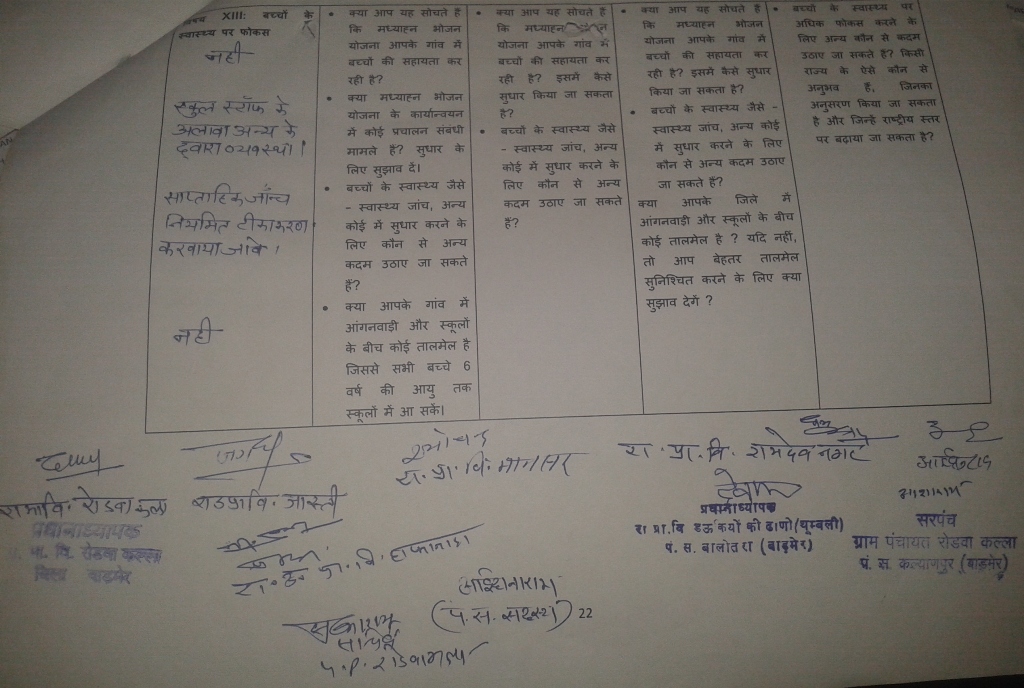 XIII: बच्चों के
स्वास्थ्य पर फोकस
नही
स्कुल स्टॉफ के
अलावा अन्य के
द्वारा व्यवस्था।
साप्ताहिक जाँच
नियमित टीकाकरण
करवाया जावे।
नही
• क्या आप यह सोचते हैं
कि मध्याह्न भोजन
योजना आपके गांव में
बच्चों की सहायता कर
रही है?
• क्या मध्याह्न भोजन
योजना के कार्यान्वयन
में कोई प्रचालन संबंधी
मामले हैं? सुधार के
लिए सुझाव दें।
• बच्चों के स्वास्थ्य जैसे
- स्वास्थ्य जांच, अन्य
कोई में सुधार करने के
लिए कौन से अन्य
कदम उठाए जा सकते
हैं?
• क्या आपके गांव में
आंगनवाडी और स्कूलों
के बीच कोई तालमेल है
जिससे सभी बच्चे 6
वर्ष की आयु तक
स्कूलों में आ सकें।
• क्या आप यह सोचते हैं
कि मध्याह्न
योजना आपके गांव में
बच्चों की सहायता कर
रही है? इसमें कैसे
सुधार किया जा सकता
है?
• बच्चों के स्वास्थ्य जैसे
- स्वास्थ्य जांच, अन्य
कोई में सुधार करने के
लिए कौन से अन्य
कदम उठाए जा सकते
हैं?
• क्या आप यह सोचते हैं
कि मध्याह्न भोजन
योजना आपके गांव में
बच्चों की सहायता कर
रही है? इसमें कैसे सुधार
किया जा सकता है?
• बच्चों के स्वास्थ्य जैसे -
स्वास्थ्य जांच, अन्य कोई
में सुधार करने के लिए
कौन से अन्य कदम उठाए
जा सकते हैं?
क्या आपके जिले में
आंगनवाडी और स्कूलों के बीच
कोई तालमेल है ? यदि नहीं,
तो आप बेहतर तालमेल
सुनिश्चित करने के लिए क्या
सुझाव देगें ?
• बच्चों के स्वास्थ्य पर
अधिक फोकस करने के
लिए अन्य कौन से कदम
उठाए जा सकते है? किसी
राज्य के ऐसे कौन से
अनुभव है, जिनका
अनुसरण किया जा सकता
है और जिन्हे राष्ट्रीय स्तर
पर बढ़ाया जा सकता है?
रा. प्रा. वि. रामदेव नगर
रा. प्रा. वि.
प्रधानाध्यापक
वि. रोडवा कल्ला
बाड़मेर
प्रधानाध्यापक
रा प्रा.वि डऊकियों की ढाणी(थूम्बली)
पं. स. बालोतरा (बाड़मेर)
सरपंच
ग्राम पंचायत रोडवा कल्ला
पं. स. कल्याणपुर (बाड़मेर)
(पं. स. सदस्य) 22